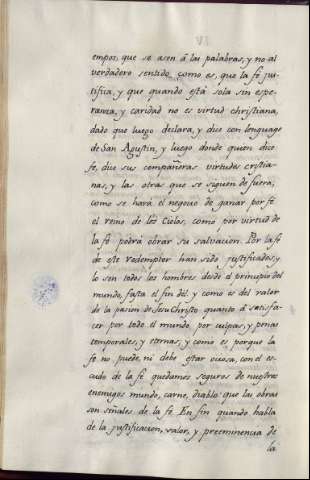 empos, que se asen á las palabras, y no al
verdadero sentido como es, que la fé jus-
tifica, y que quando está sola sin espe-
ranza, y caridad no es virtud christiana,
dado que luego declara, y dice con lenguage
de San Agustin, y luego donde quien dice
fe, dice sus compañeras virtudes cristia-
nas, y las otras que se siguen de fuera,
como se hará el negocio de ganar por fé
el reino de los Cielos, como por virtud de
la fé podrá obrar su salvacion. Por la fé
de este redemptor han sido justificados, y
lo son todos los hombres desde el principio del
mundo, fasta el fin dél. y como es del valor
de la pasion de Jesu Christo quanto á satisfa-
cer por todo el mundo, por culpas, y penas
temporales, y eternas, y como es porque la
fé no puede, ni debe estar ociosa, con el es-
cudo de la fé quedamos seguros de nuestros
enemigos mundo, carne, diablo: que las obras
son señales de la fé. En fin quando habla
de la justificacion, valor, y preeminencia de
la